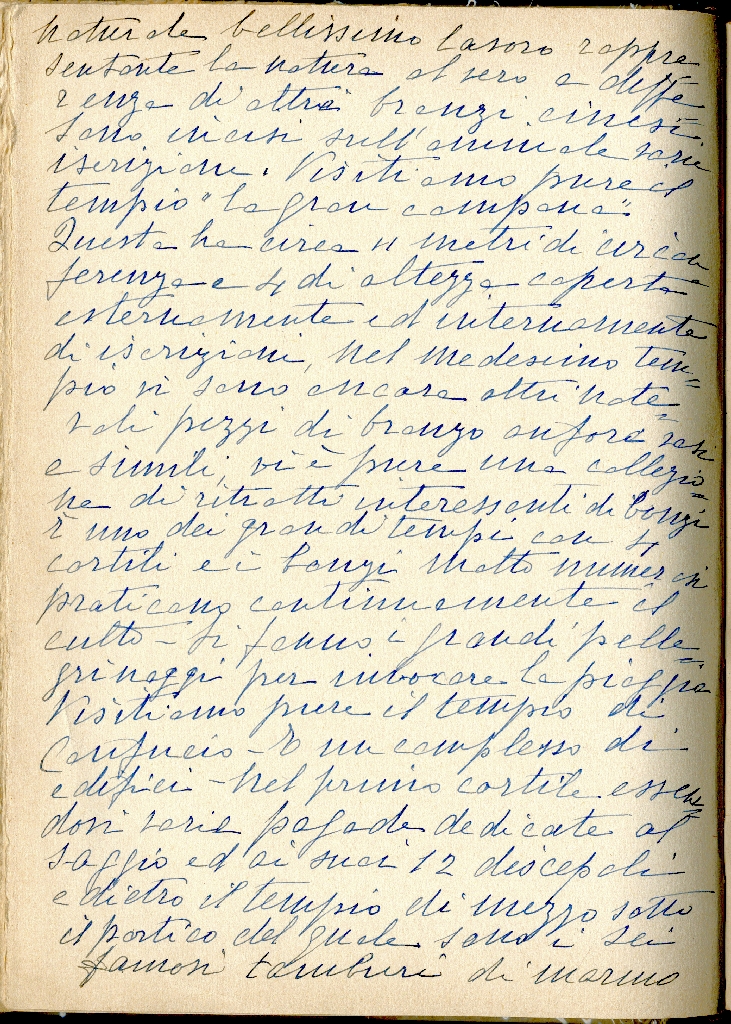 naturale bellissimo lavoro rappre
sentante la natura al vero a diffe
renza di altri bronzi cinesi
sono incisi sull'animale varie
iscrizioni. Visitiamo pure il
tempio "la gran campana".
Questa ha circa 11 metri di circon
ferenza e 4 di altezza coperta
esternamente ed internamente
di iscrizioni, nel medesimo tem=
pio vi sono ancora altri note=
voli pezzi di bronzo anfore vasi
e simili, vi è pure una collezio=
ne di ritratti interessanti di bonzi
È uno dei grandi tempi con 4
cortili e i bonzi molto numerosi
praticano continuamente il
culto - Si fanno i grandi pelle=
grinaggi per invocare la pioggia
Visitiamo pure il tempio di
Confucio - È un complesso di
edifici - Nel primo cortile essen=
dovi varie pagode dedicate al
saggio ed ai suoi 12 discepoli
e dietro il tempio di mezzo sotto
il portico del quale sono i sei
famosi tamburi di marmo